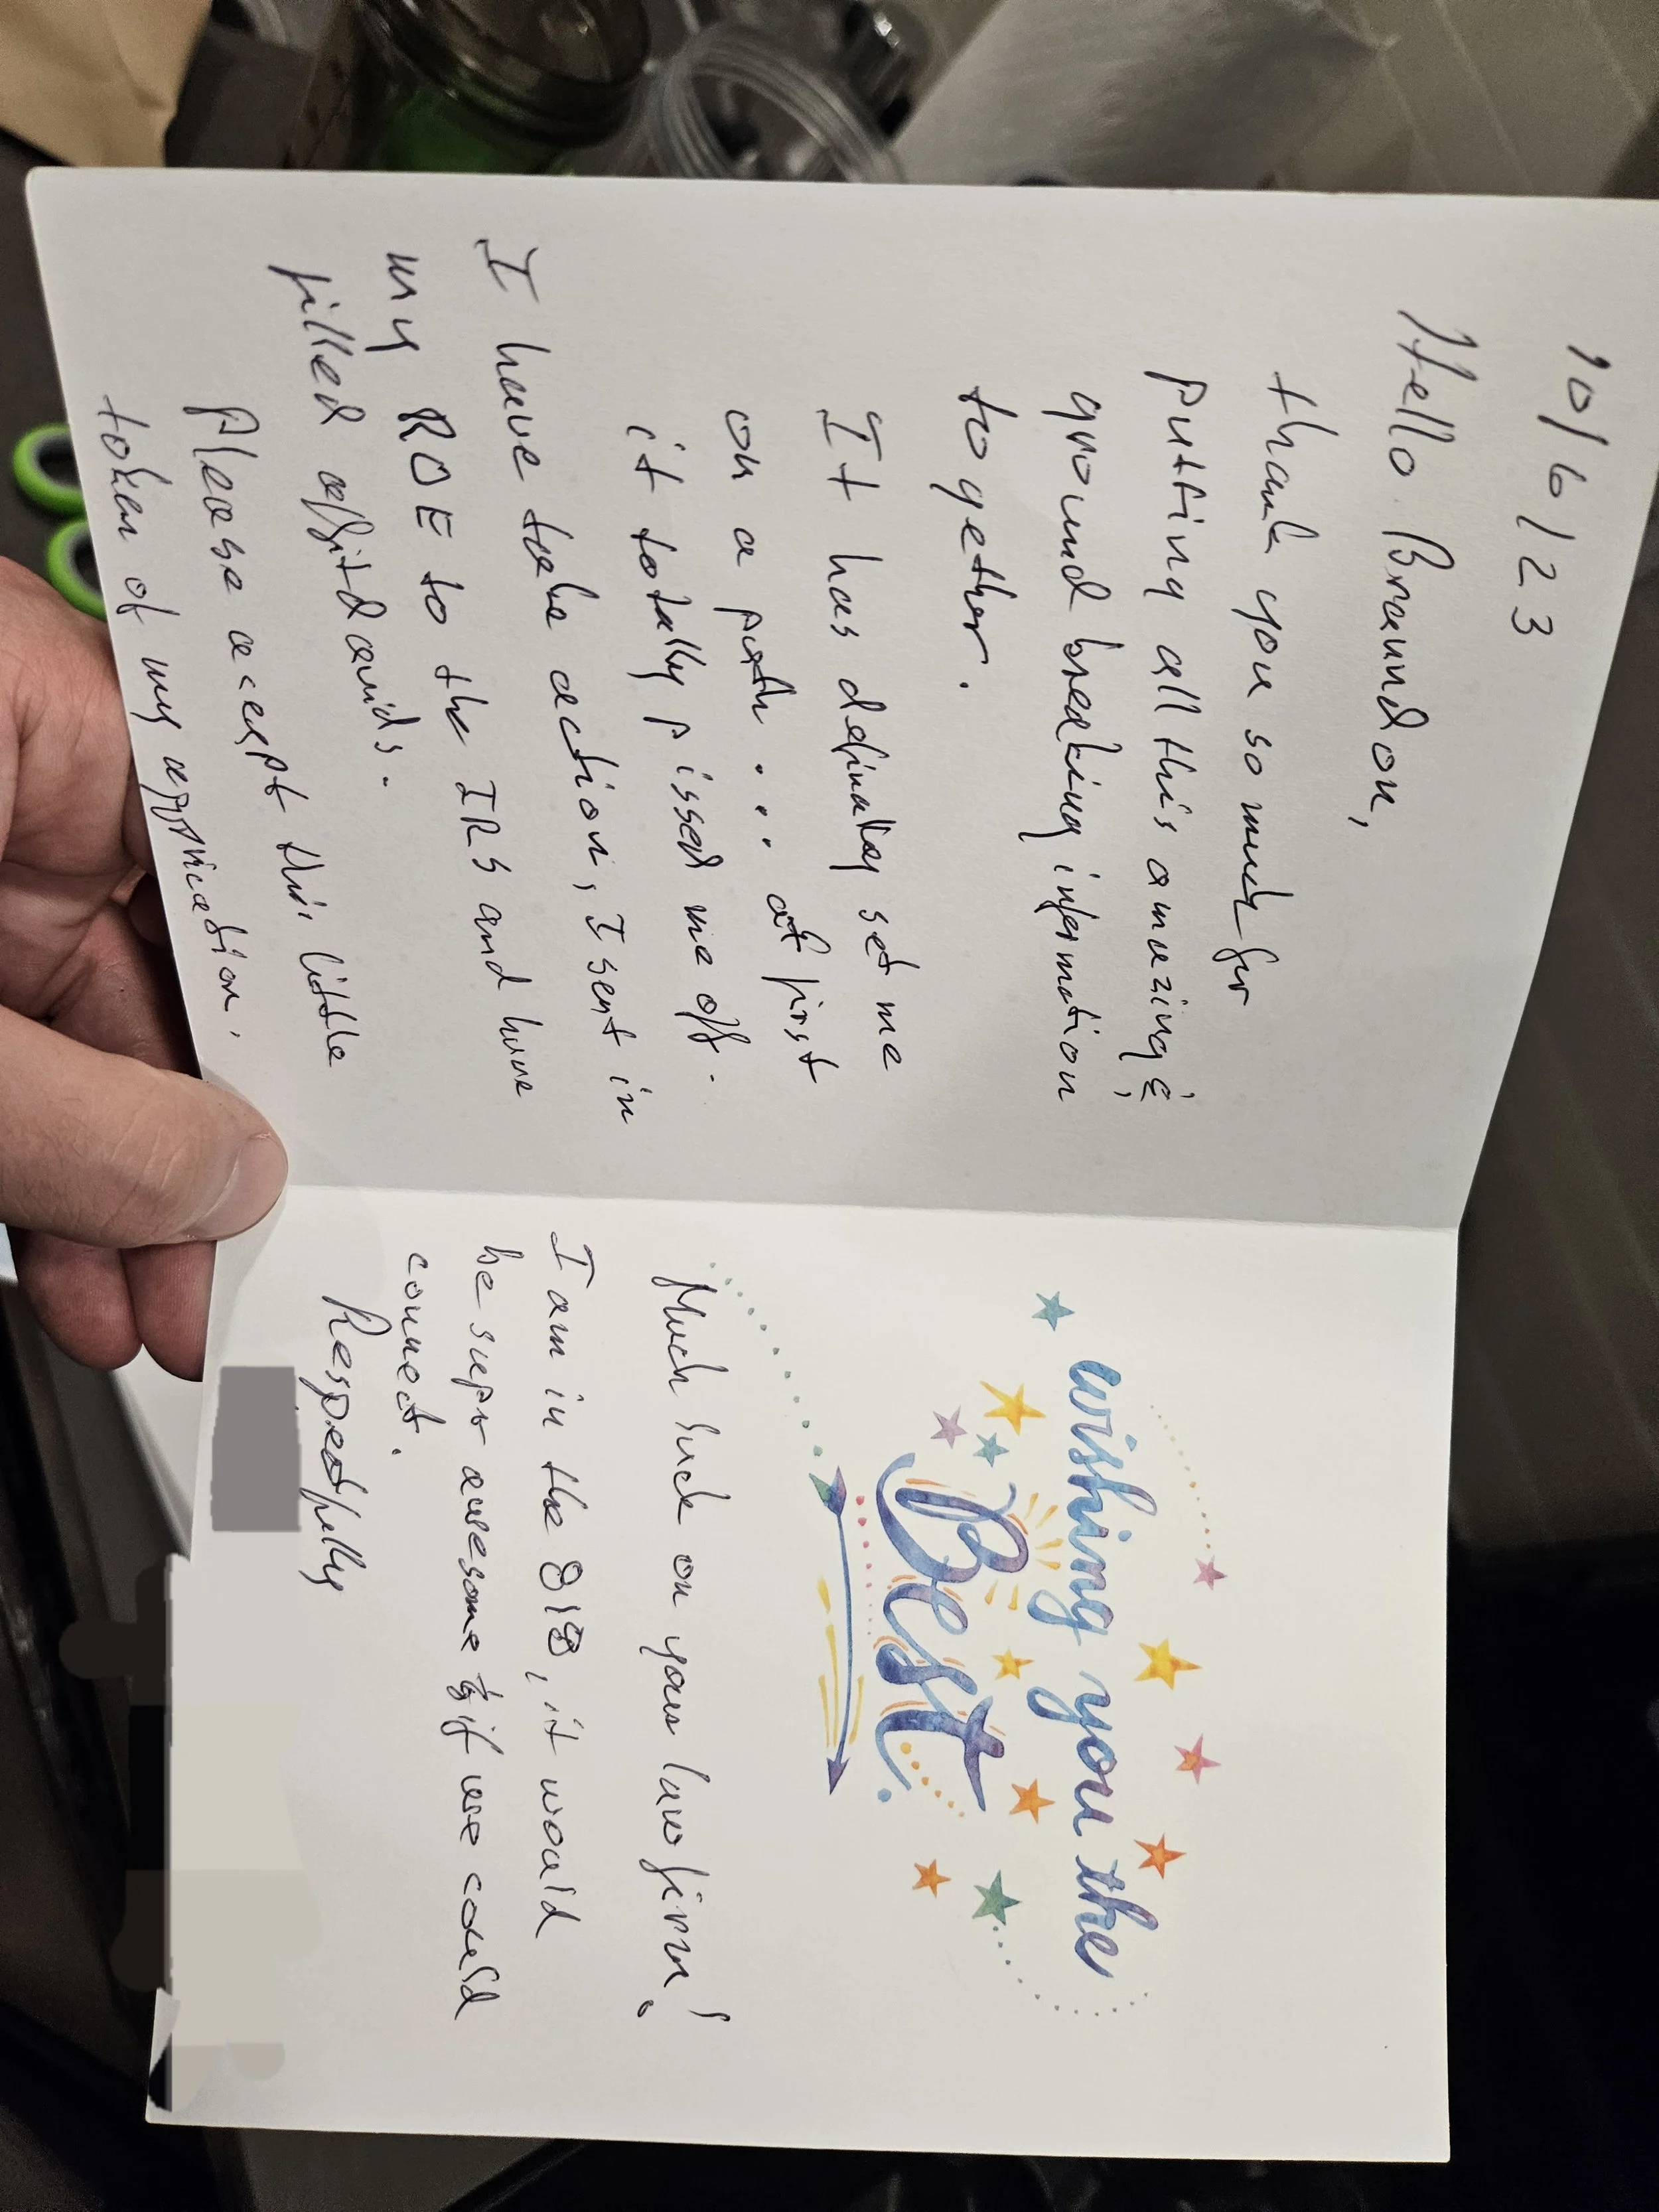 10/6/23
Hello Braundon,
thank you so much for
putting all this amazing &
ground breaking information
together.
It has definatley set me
on a path ... at first
it totally pissed me off.
I have take action, I sent in
my ROE to the IRS and have
filled affidavids.
Please accept this little
token of my appriciation.
wishing you the
Best
Much luck on your law firm!
I am in the 818, it would
be super awesome if we could
connect.
Respectfully